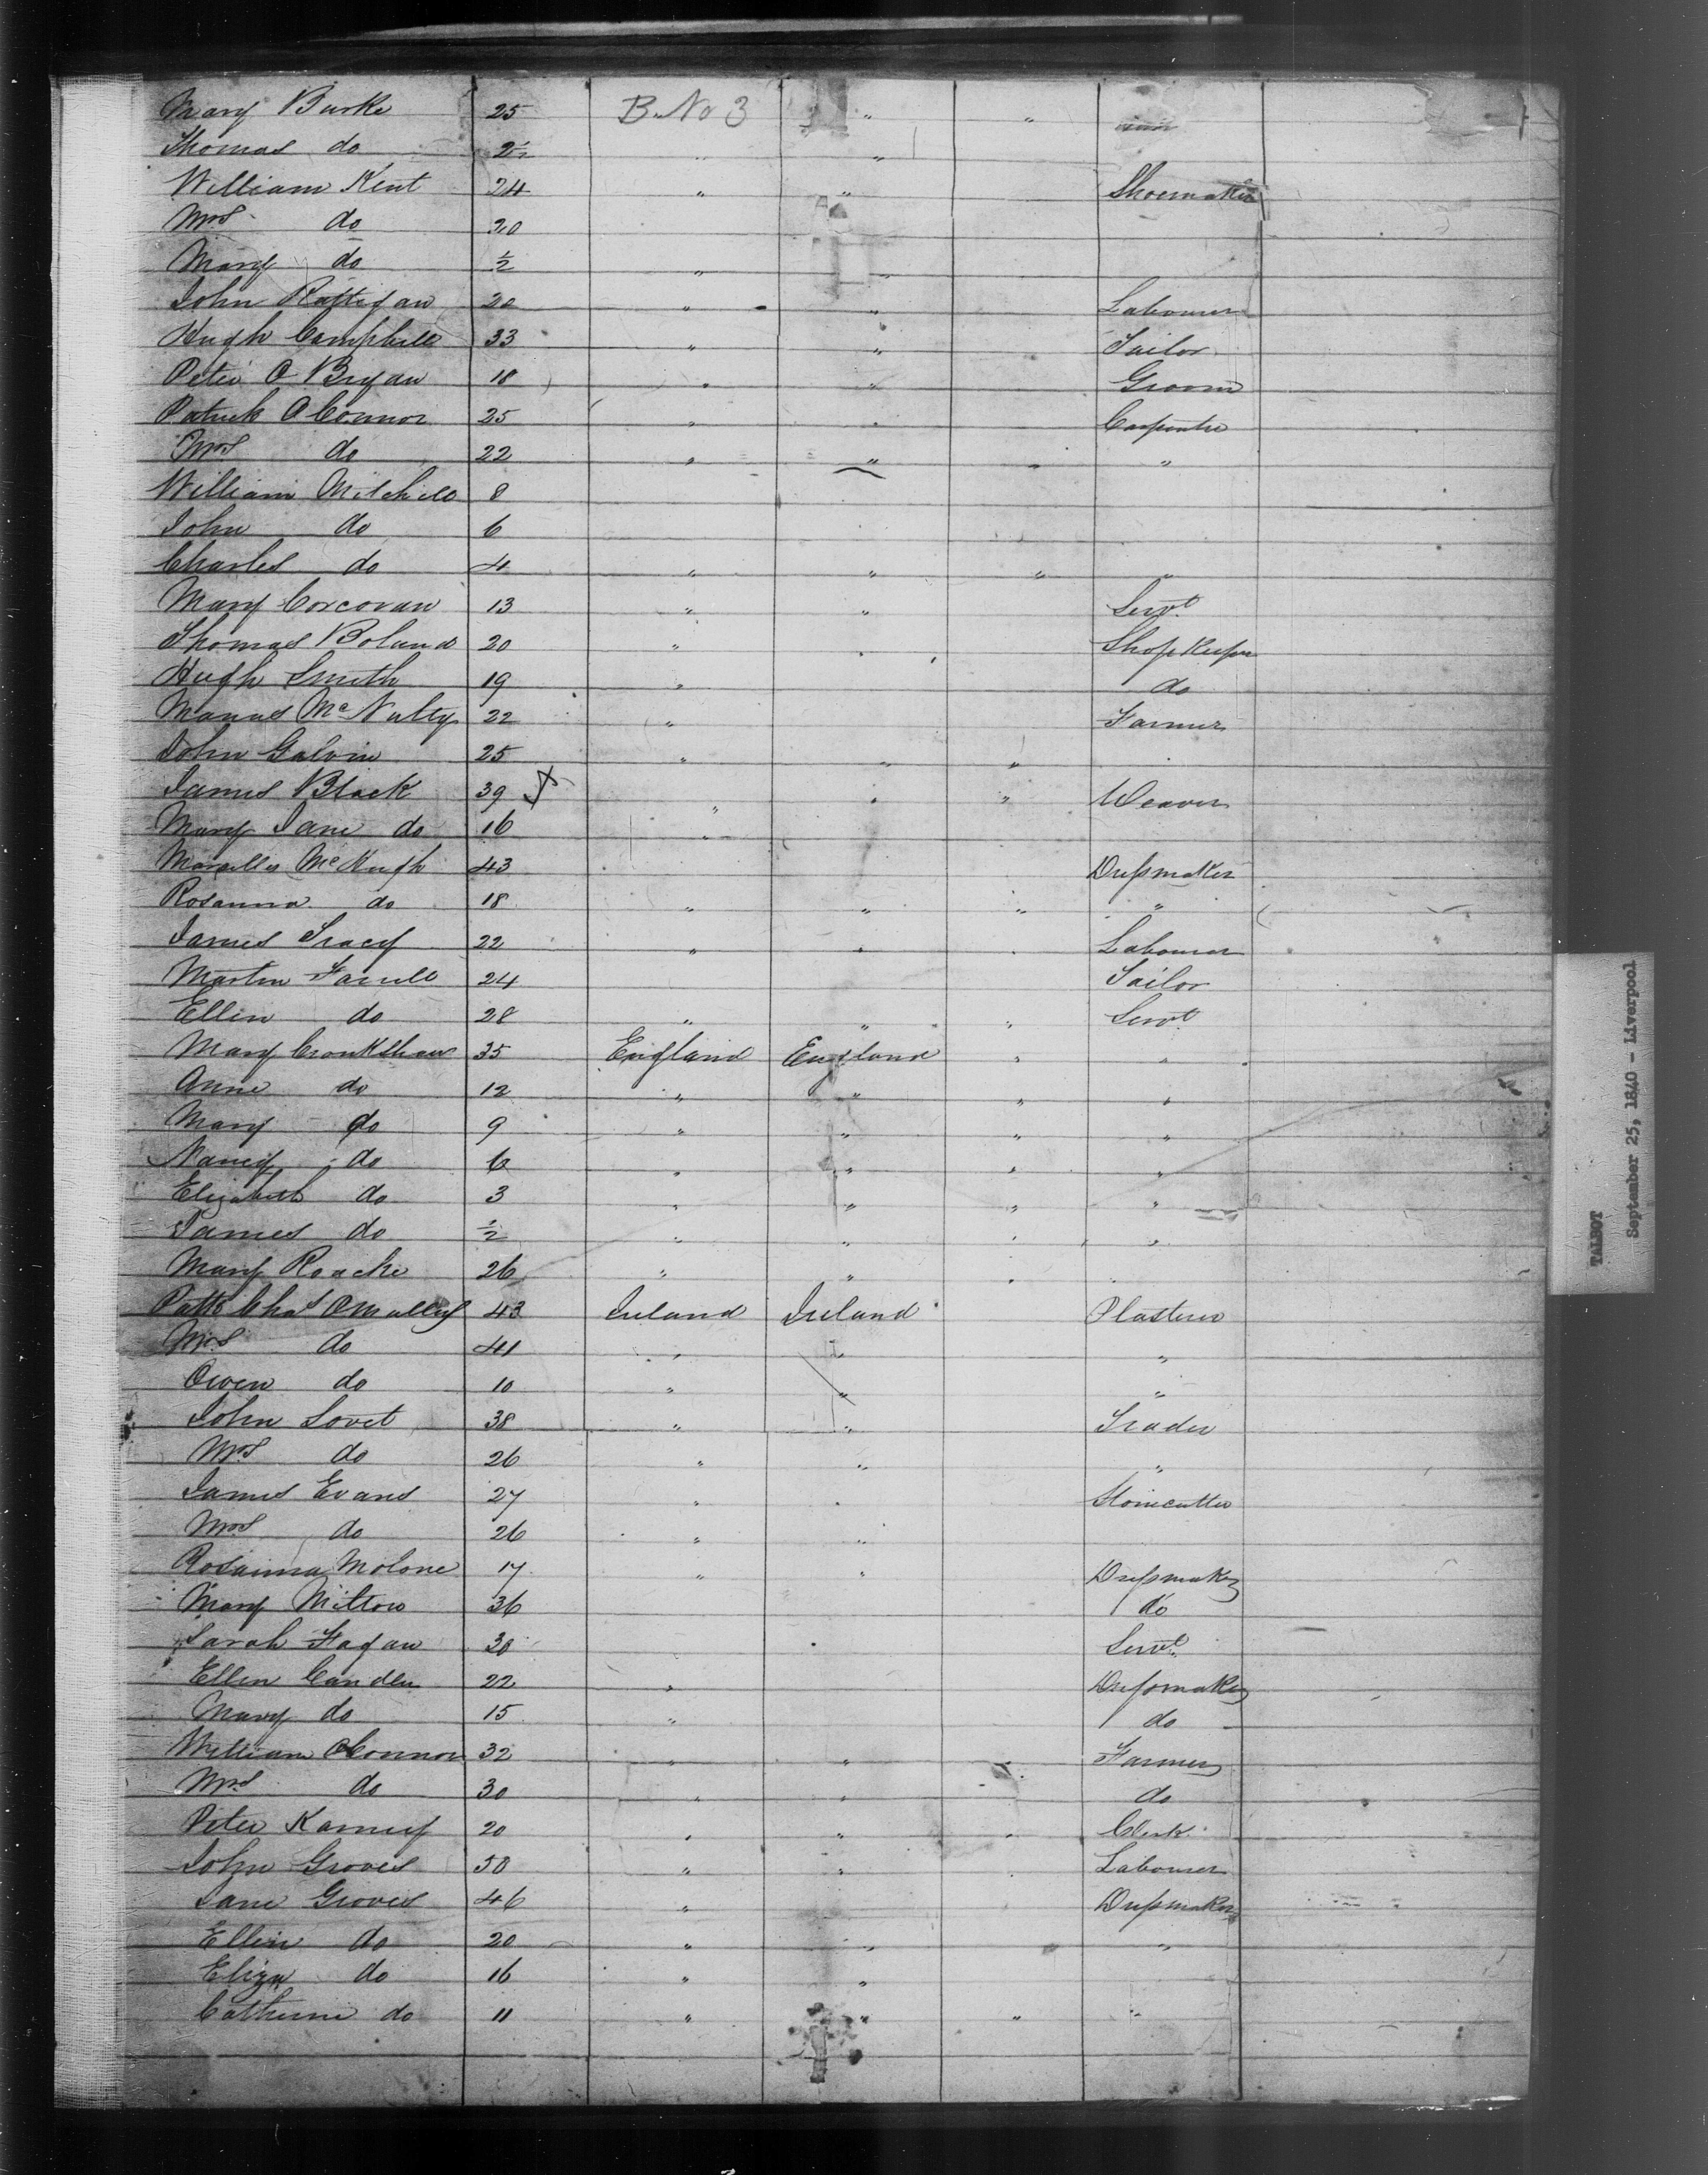 Mary Burke 25 B. No 3 " "
Thomas do 2½ " "
William Kent 24 " " Shoemaker
Mrs do 20
Mary do ½ " "
John Rattigan 20 " " Labourer
Hugh Campbell 33 " " Tailor
Peter O Bryan 18 " " Groom
Patrick O Connor 25 " " Carpenter
Mrs do 22 " " " "
William Mitchell 8
John do 6
Charles do 4 " " " "
Mary Corcoran 13 " " Servt
Thomas Boland 20 " " Shop Keeper
Hugh Smith 19 " do
Manus Mc Nulty 22 " Farmer
John Galvin 25 " " " "
James Black 39 " " " Weaver
Mary Jane do 16 "
Mc Hugh 43 Dressmaker
Rosanna do 18 " " " "
James Tracy 22 " " " Labourer
Martin Farrell 24 Tailor
Ellen do 28 " " " Servt
Mary Cronkshaw 35 England England " "
Anne do 12 " " " "
Mary do 9 " " " "
Nancy do 6 " " " "
Elizabeth do 3 " " " "
James do ½ " " " "
Mary Roache 26 " " "
Patk Chas O Malley 43 Ireland Ireland Plasterer
Mrs do 41 " " "
Owen do 10 " " "
John Lovet 38 " " Trader
Mrs do 26 " " "
James Evans 27 " " Stonecutter
Mrs do 26 " "
Rosanna Molone 17 " " Dressmaker
Mary Mitton 36 do
Sarah Fagan 30 Servt
Ellen Candlen 22 " Dressmaker
Mary do 15 " do
William O Connor 32 " " Farmer
Mrs do 30 " " do
Peter Karney 20 " " " Clerk
John Groves 50 " " Labourer
Jane Groves 46 " Dressmaker
Ellen do 20 " " "
Eliza do 16 " "
Catherine do 11 " " " "
TALBOT
September 25, 1840 - Liverpool